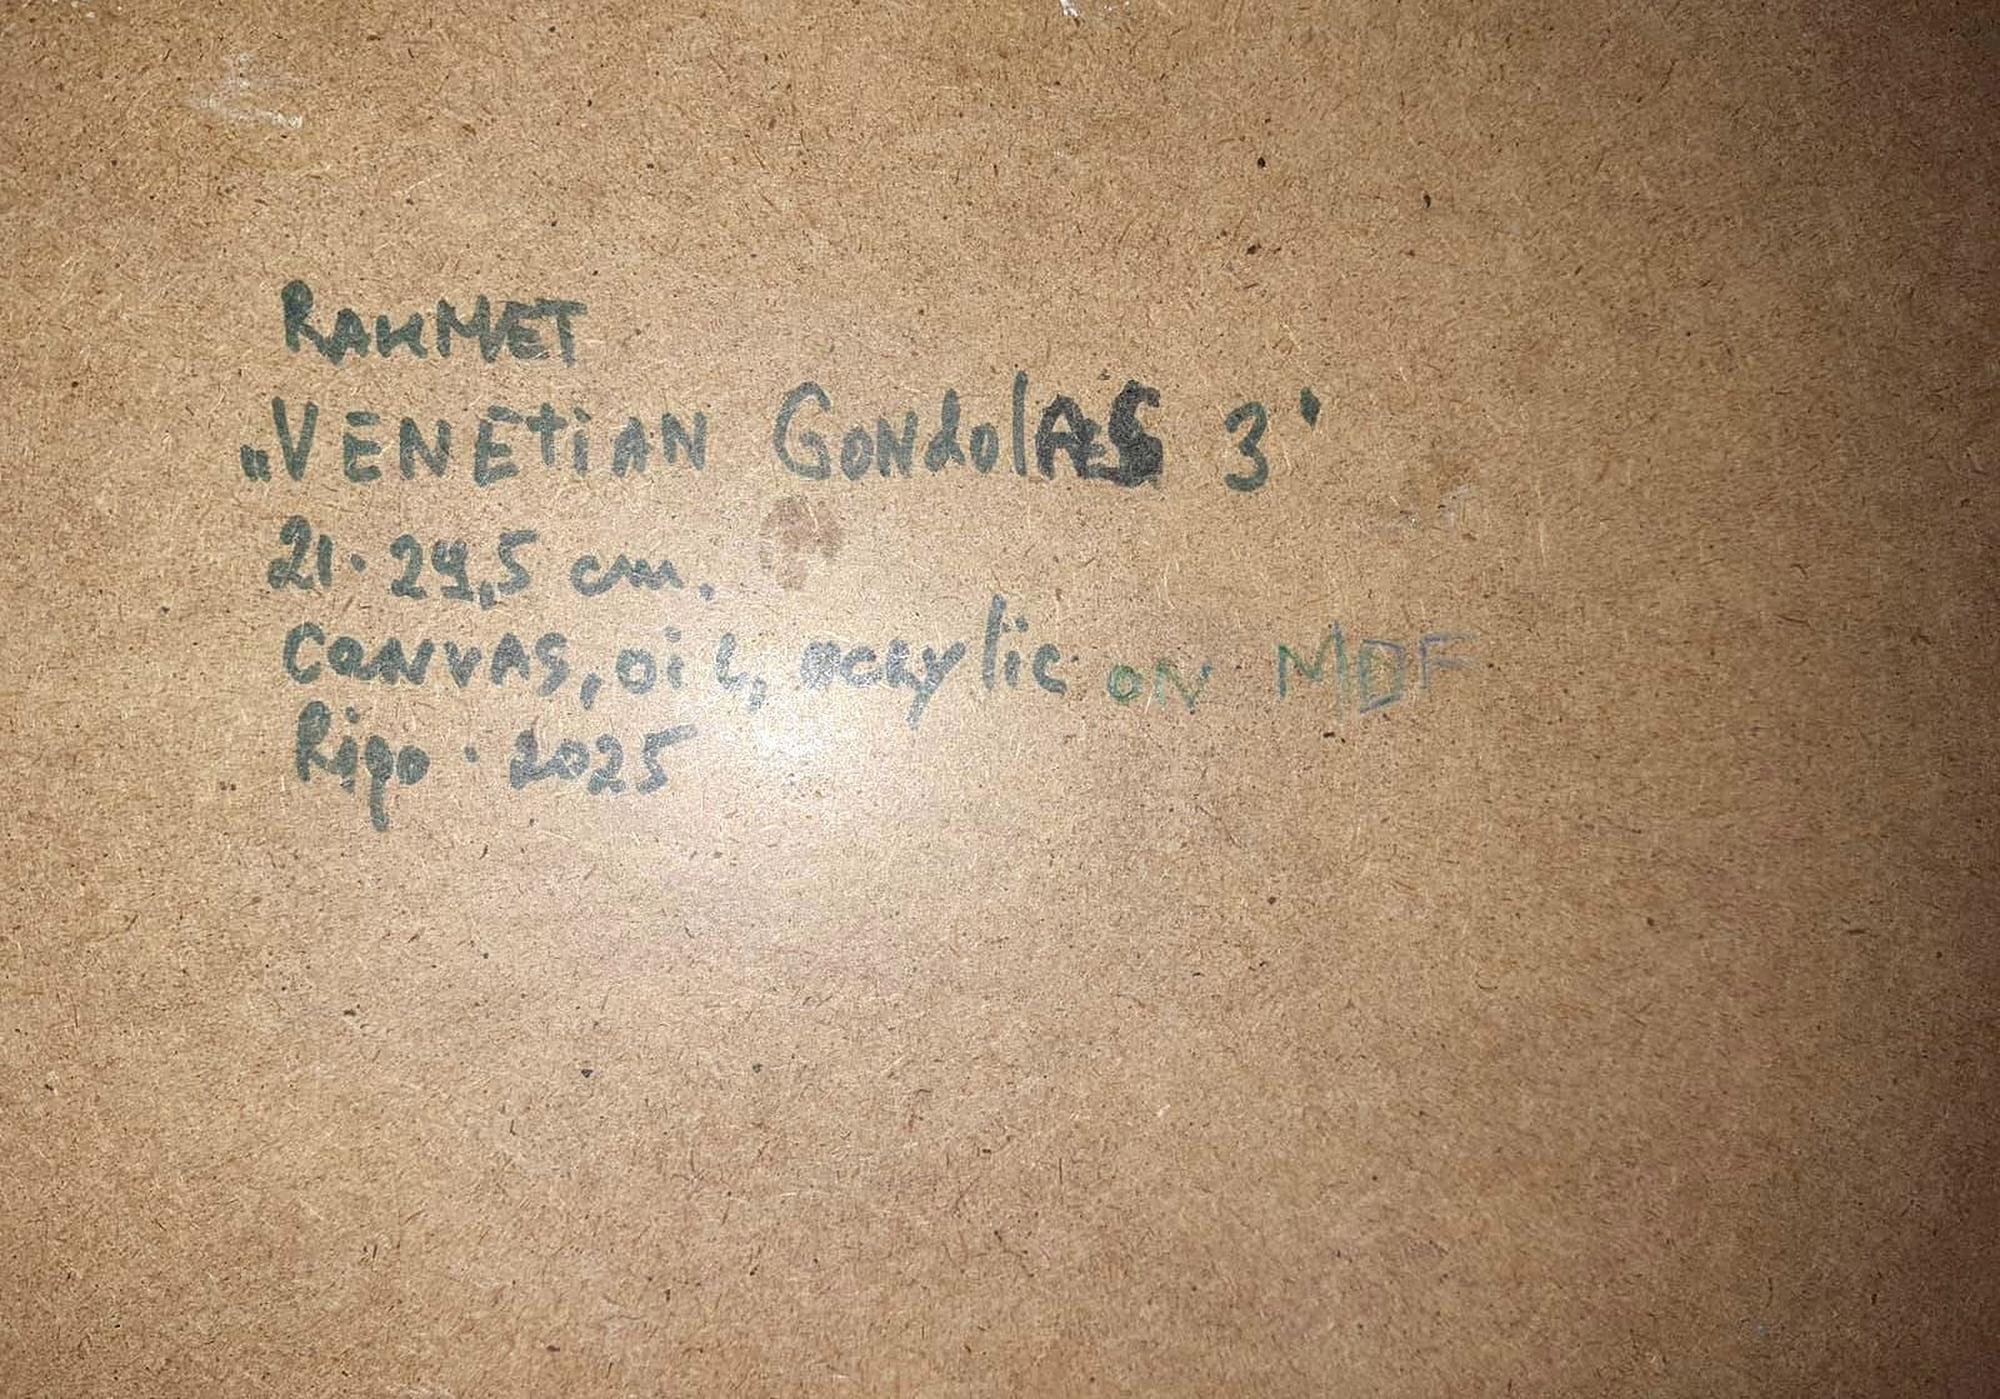 RAKMET
„VENEtiAN GoNdolAS 3'
21·29,5 cm.
CANVAS, oil, acrylic ON MDF
Riga · 2025